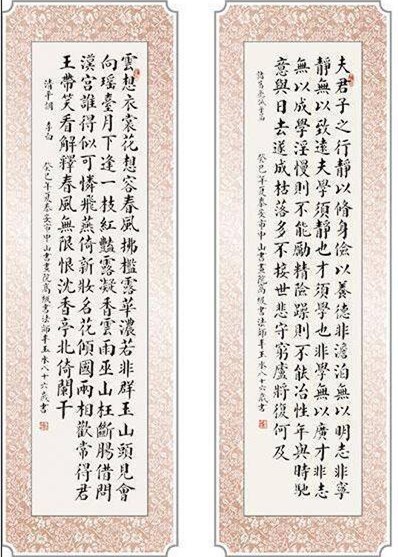 夫君子之行靜以脩身儉以養德非澹泊無以明志非寧
靜無以致遠夫學須靜也才須學也非學無以廣才非志
無以成學淫慢則不能勵精險躁則不能冶性年與時馳
意與日去遂成枯落多不接世悲守窮廬將復何及
諸葛亮誡子書 癸巳年夏泰安市中山書畫院高級書法師李玉八十六歲書
雲想衣裳花想容春風拂檻露華濃若非群玉山頭見會
向瑤臺月下逢一枝紅豔露凝香雲雨巫山枉斷腸借問
漢宮誰得似可憐飛燕倚新妝名花傾國兩相歡常得君
王帶笑看解釋春風無限恨沈香亭北倚闌干
清平調 李白 癸巳年夏泰安市中山書畫院高級書法師李玉八十六歲書